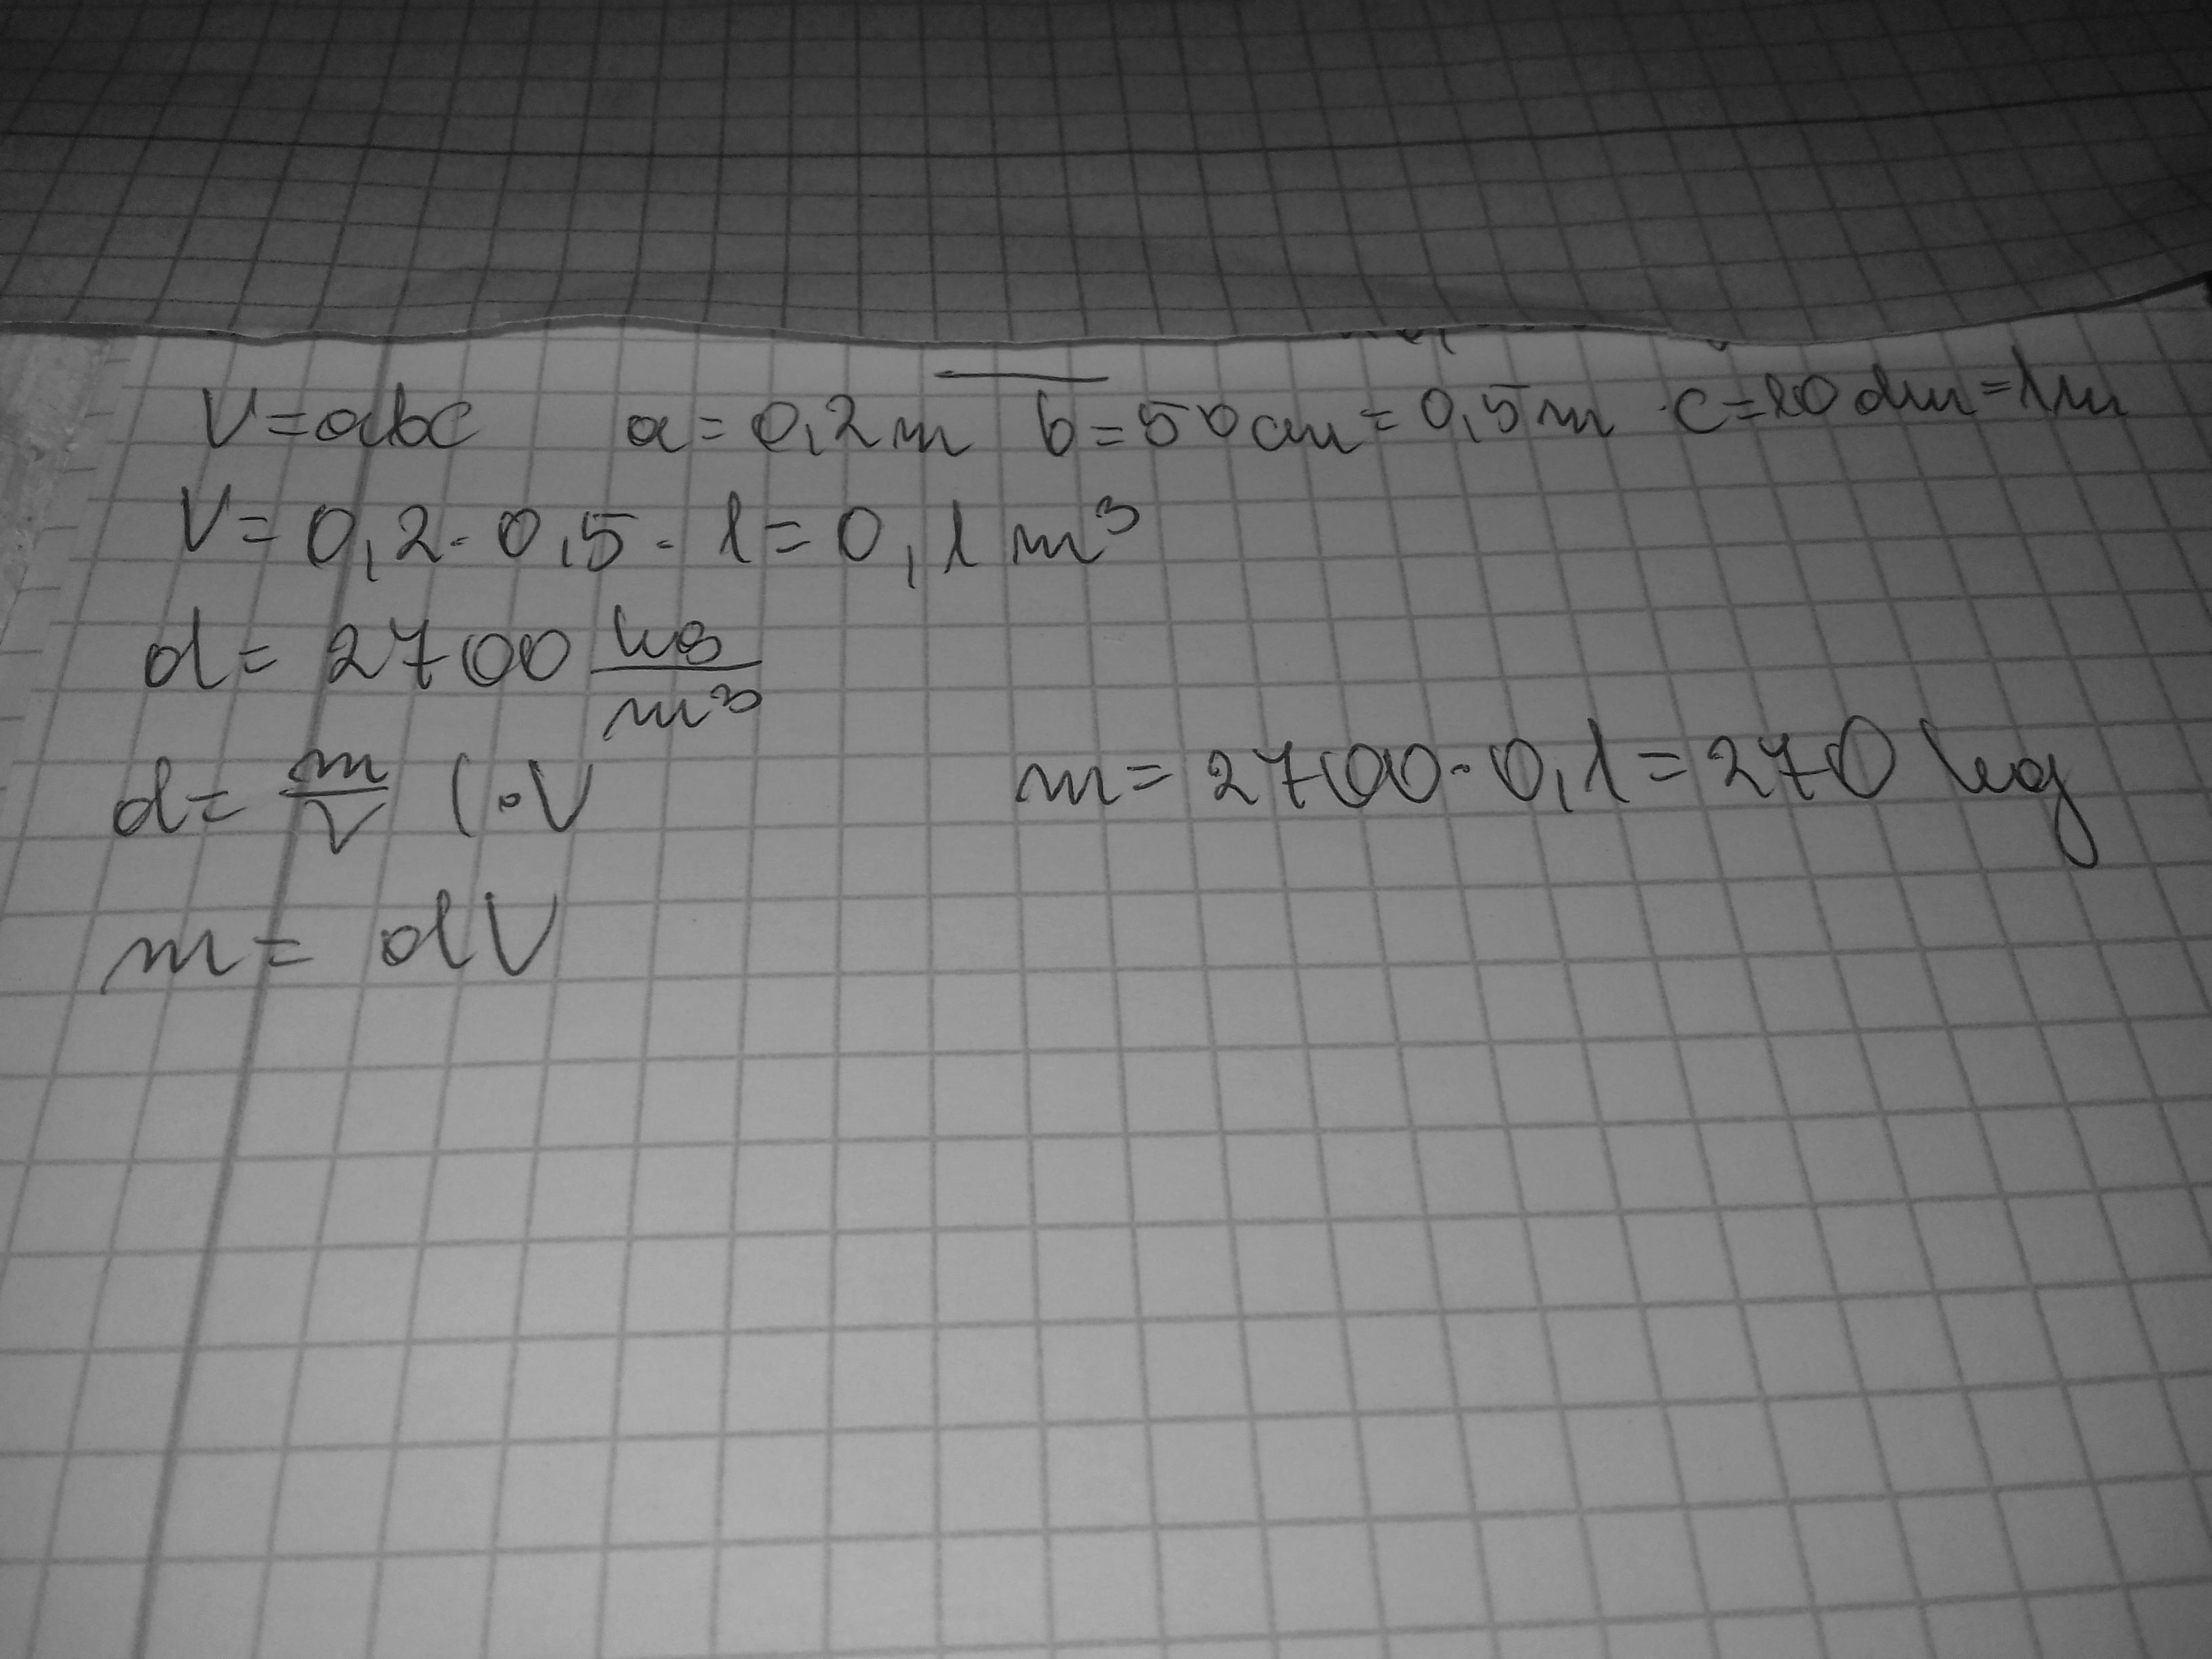 V=abc a=0,2m b=50cm=0,5m c=10dm=1m
V=0,2·0,5·1=0,1m³
d=2700 kg/m³
d=m/V (·V
m=2700·0,1=270 kg
m=dV